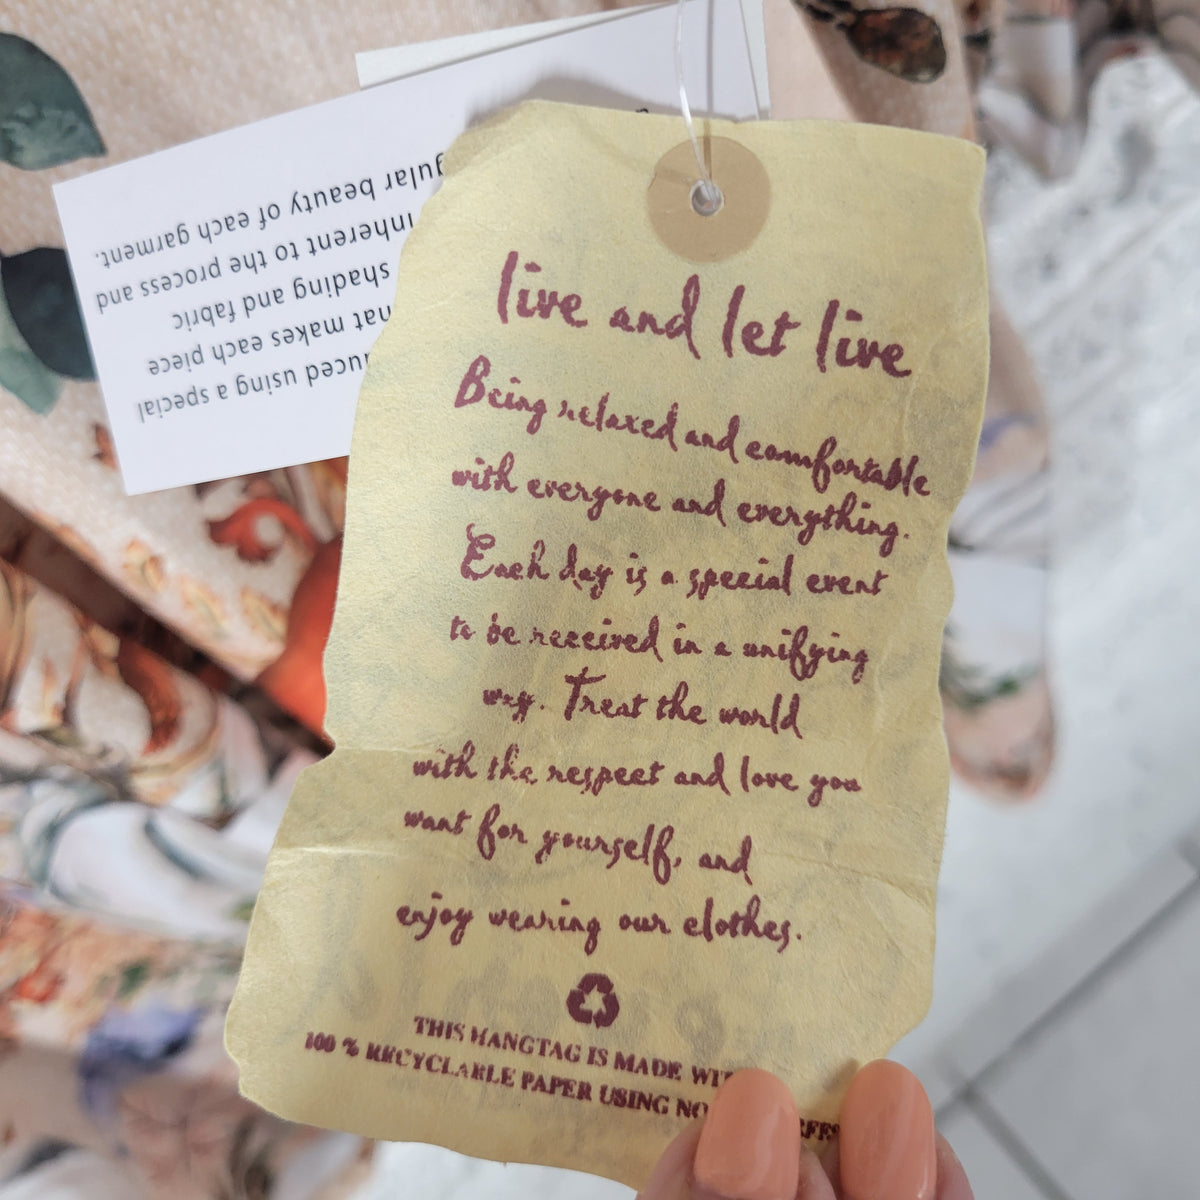 live and let live
Being relaxed and comfortable
with everyone and everything.
Each day is a special event
to be received in a unifying
way. Treat the world
with the respect and love you
want for yourself, and
enjoy wearing our clothes.
THIS HANGTAG IS MADE
100 % RECYCLABLE PAPER USING NO
a special
using
that makes each piece
shading and fabric
inherent to the process and
beauty of each garment.